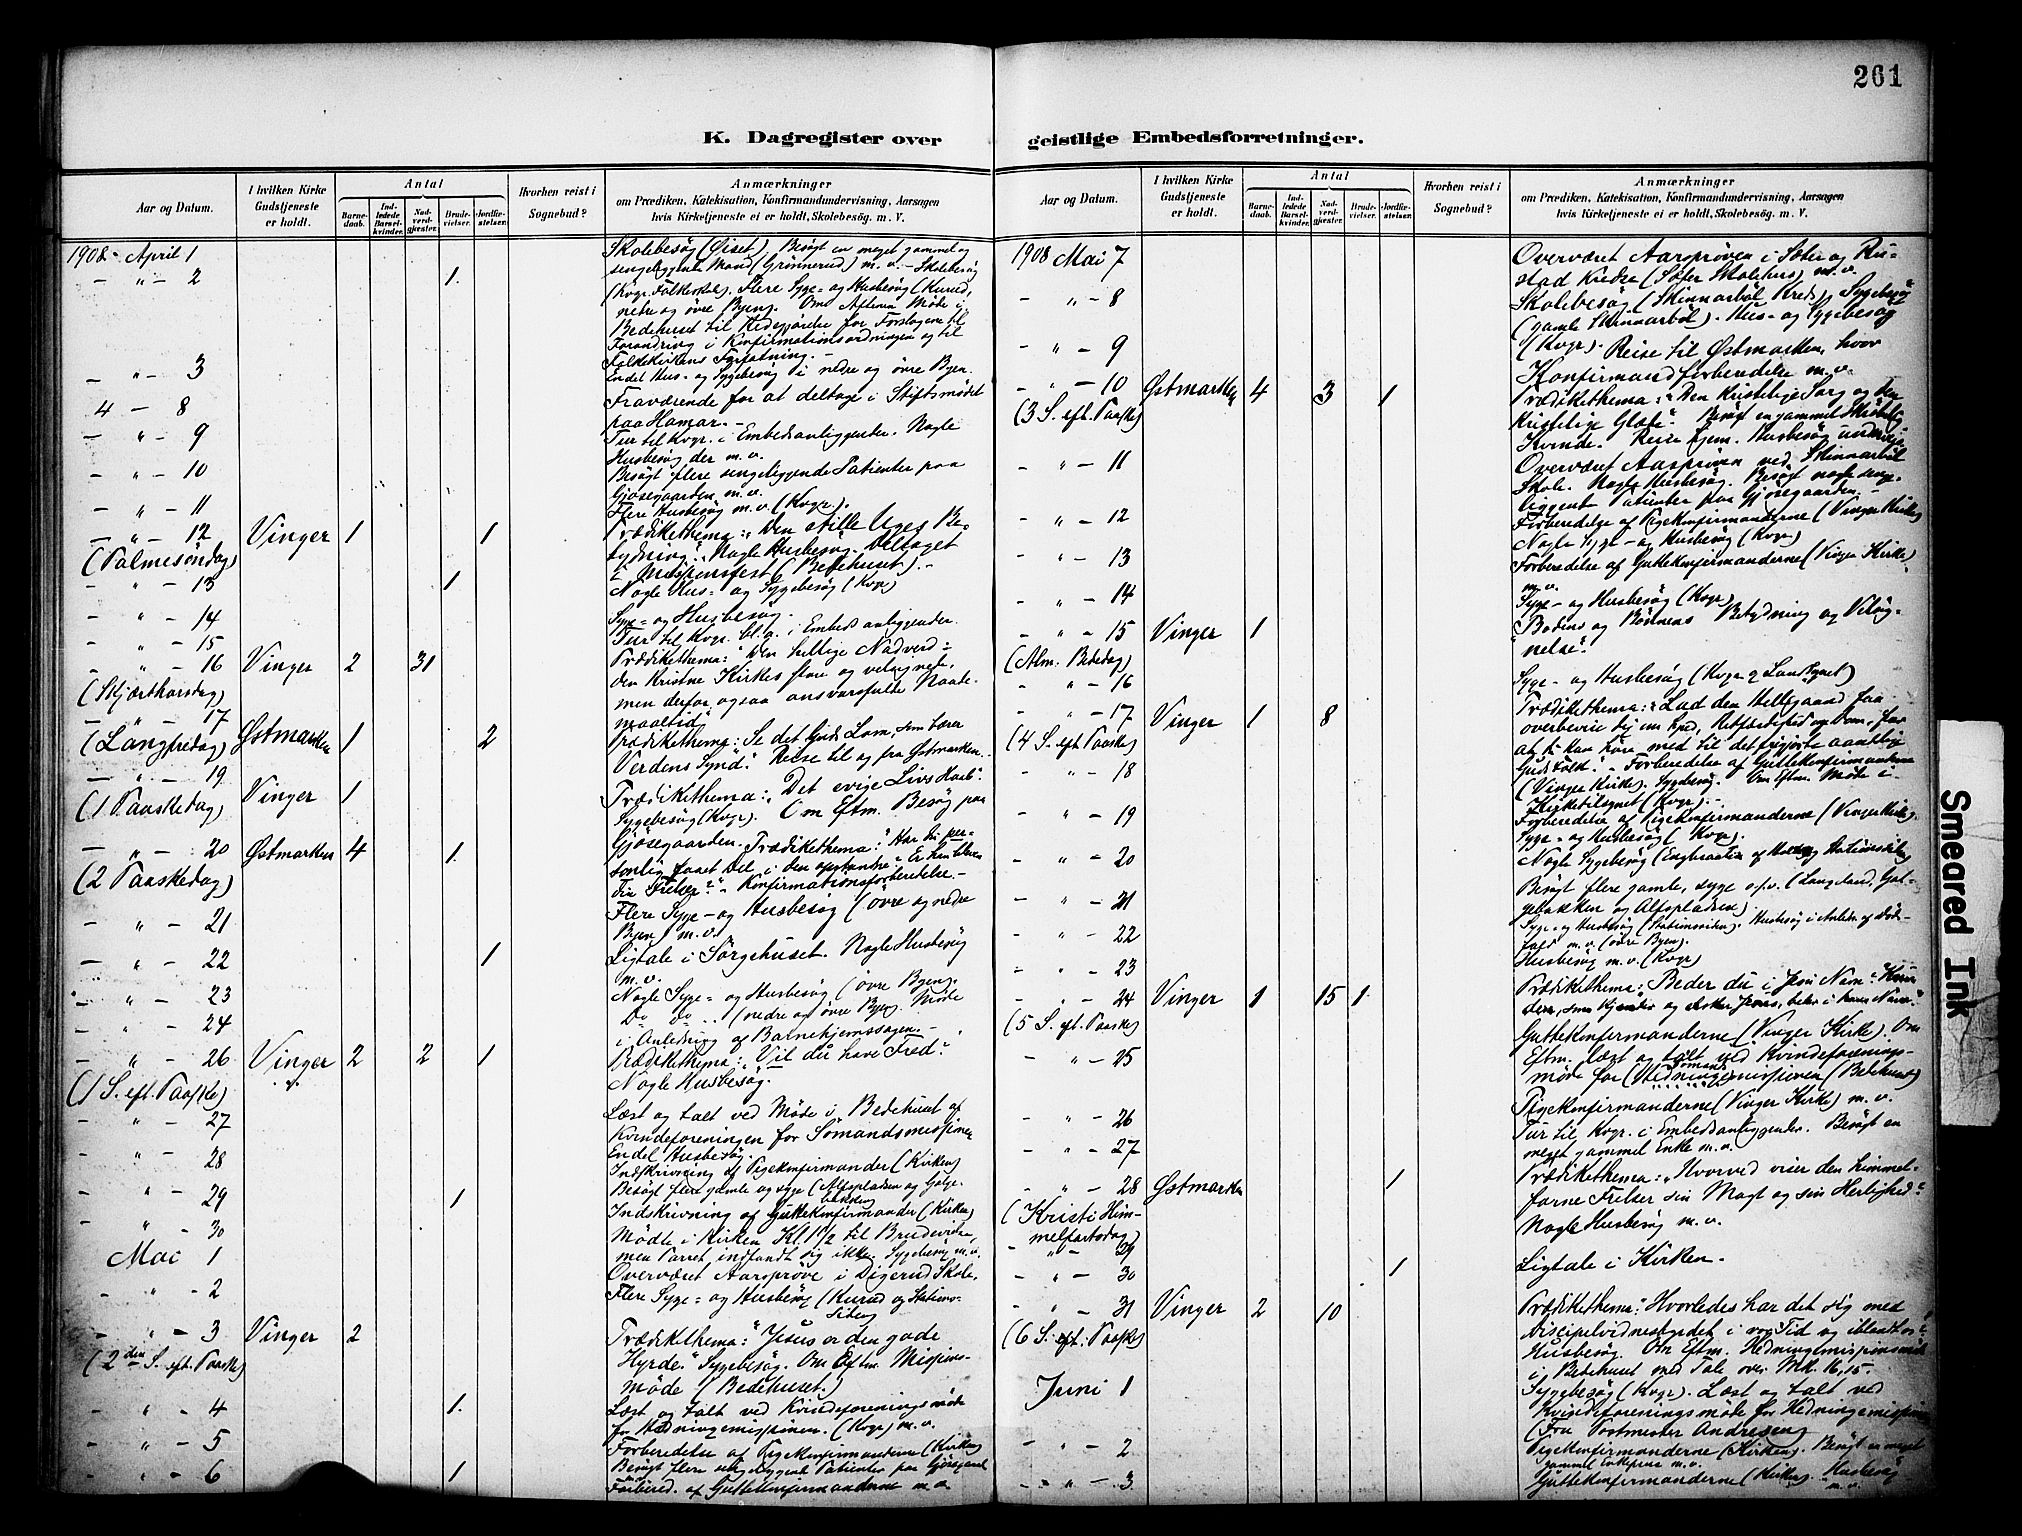 261
K. Dagregister over geistlige Embedsforretninger.
Aar og Datum.
I hvilken Kirke Gudstjeneste er holdt.
Antal
Barnedaab.
Indledede Barselkvinder.
Nadverdgjester.
Brudevielser.
Jordfæstelser.
Hvorhen reist i Sognebud?
Anmærkninger
om Prædiken, Katekisation, Konfirmandundervisning, Aarsagen
hvis Kirketjeneste ei er holdt, Skolebesøg. m. V.
1908 - April 1
Skolebesøg (Øiset). Besøgt en meget gammel og
sengeliggende Mand (Grønnerud) m. v. - Skolebesøg
- " - 2 1.
(Kvgr. Folkeskole). Flere Syge- og Husbesøg (Kurud,
nedre og øvre Byen). Om Aftenen Møde i
Bedehuset til Redegjørelse for Forslagene til
Forandring i Konfirmationsordningen og til
Folkekirkens Forfatning. -
- " - 3
Endel Hus- og Sygebesøg i nedre og øvre Byen.
4 - 8
Fraværende for at deltage i Stiftsmødet
paa Hamar. -
- " - 9
Tur til Kvgr. i Embedsanliggender. Nogle
Husbesøg der m. v.
- " - 10
Besøgt flere sengeliggende Patienter paa
Gjøsegaarden m. v.
- " - 11
Flere Husbesøg m. v. (Kvgr).
- " - 12 Vinger 1 1
Prædikethema: "Den stille Uges Be-
(Palmesøndag)
tydning". Nogle Husbesøg. Deltaget
i Missionsfest (Bedehuset). -
- " - 13 1
Nogle Hus- og Sygebesøg (Kvgr)
- " - 14
Syge- og Husbesøg.
- " - 15
Tur til Kvgr. bl. a. i Embedsanliggender.
- " - 16 Vinger 2 31
Prædikethema: "Den hellige Nadverd -
(Skjærthorsdag)
den kristne Kirkes store og velsignede,
men derfor ogsaa ansvarsfulde Naade-
maaltid"
- " - 17
(Langfredag) Østmarken 1 2
Prædikethema: Se det Guds Lam, som bærer
Verdens Synd". Reise til og fra Østmarken.
- " - 19
(1 Paaskedag) Vinger 1
Prædikethema: "Det evige Livs Haab".
Sygebesøg (Kvgr). Om Eftm. Besøg paa
- " - 20 Østmarken 4 1.
Gjøsegaarden. Prædikethema: "Har du per-
(2 Paaskedag)
sonlig faaet Del i den opstandne - Er han bleven
din Frelser?" - Konfirmationsforberedelse -
- " - 21
Flere Syge- og Husbesøg (øvre og nedre
Byen) m. v.
- " - 22 1
Ligtale i Sørgehuset. Nogle Husbesøg
m. v.
- " - 23
Nogle Syge- og Husbesøg (øvre Byen).
- " - 24
Do Do (nedre og øvre Byen). Møde
i Anledning af Barnehjemssagen. -
- " - 26 Vinger 2 2 1
Prædikethema: "Vil du have Fred".
(1 S. eft. Paaske)
Nogle Husbesøg.
- " - 27
Læst og talt ved Møde i Bedehuset af
Kvindeforeningen for Sømandsmissionen
- " - 28
Endel Husbesøg.
Indskrivning af Pigekonfirmander (Kirken)
- " - 29 1
Besøgt flere gamle og syge (Alfspladsen og Golge-
bakken)
- " - 30
Indskrivning af Guttekonfirmander (Kirken)
Mai 1
Mødte i Kirken Kl. 1 1/2 til Brudevielse,
men Parret indfandt sig ikke. Sygebesøg m. v.
- " - 2
Overværet Aarsprøve i Digerud Skole.
Flere Syge- og Husbesøg (Kurud og Stations-
siden)
- " - 3 Vinger 2
Prædikethema: "Jesus er den gode
(2den S. eft. Paaske)
Hyrde." Sygebesøg. Om Eftm. Missions-
møde (Bedehuset.)
- " - 4 1.
Læst og talt ved Kvindeforeningsmøde
for Hedningemissionen. (Kvgr) m. v.
- " - 5
Forberedelse af Pigekonfirmanderne (Kirken)
- " - 6 1
Besøgt flere sengeliggende Patienter paa Gjøsegaard
Forbered. af Guttekonfirmanderne m. v.
Aar og Datum.
I hvilken Kirke Gudstjeneste er holdt.
Antal
Barnedaab.
Indledede Barselkvinder.
Nadverdgjester.
Brudevielser.
Jordfæstelser.
Hvorhen reist i Sognebud?
Anmærkninger
om Prædiken, Katekisation, Konfirmandundervisning, Aarsagen
hvis Kirketjeneste ei er holdt, Skolebesøg. m. V.
1908 Mai 7
Overværet Aarsprøven i Søter og Ru-
stad Kredse (Søter Skolehus) m. v.
- " - 8
Skolebesøg (Skinnarbøl Kreds), Sygebesøg
(gamle Skinnarbøl). Hus- og Sygebesøg
- " - 9
(Kvgr). Reise til Østmarken, hvor
Konfirmandforberedelse m. v.
- " - 10 Østmarken 4 3 1
Prædikethema: "Den kristelige Sorg og den
(3 S. eft. Paaske)
kristelige Glæde".
Kvinde. Reise hjem. Husbesøg underveis.
- " - 11
Overværet Aarsprøven ved Skinnarbøl
Skole. Nogle Husbesøg. Besøgt nogle senge-
liggende Patienter paa Gjøsegaarden. -
- " - 12
Forberedelse af Pigekonfirmanderne (Vinger Kirke)
Nogle Syge- og Husbesøg (Kvgr)
- " - 13
Forberedelse af Guttekonfirmanderne (Vinger Kirke)
m. v.
- " - 14
Syge- og Husbesøg (Kvgr)
- " - 15 Vinger 1
Bodens og Bønnens Betydning og Velsig-
(Alm. Bededag)
nelse".
- " - 16
Syge- og Husbesøg (Kvgr og Landsognet)
- " - 17 Vinger 1 8
Prædikethema: "Lad den Helligaand faa
(4 S. eft. Paaske)
overbevise dig om Synd, Retfærdighed og Dom, for
at du kan høre med til det frigjorte aandelige
Gudsfolk". -
- " - 18
Forberedelse af Guttekonfirmanderne
(Vinger Kirke). Sygebesøg. Om Eftm. Møde i
Kirketilsynet (Kvgr). -
- " - 19
Forberedelse af Pigekonfirmanderne (Vinger Kirke).
Syge- og Husbesøg (Kvgr).
- " - 20
Nogle Sygebesøg
- " - 21
Besøgt flere gamle, syge o. s. v. (Langeland, Gol-
gebakken og Alfspladsen)
- " - 22
Syge- og Husbesøg (Stationssiden). Husbesøg i Anledn. af Døds-
fald m. v. (øvre Byen).
- " - 23
Husbesøg m. v. (Kvgr)
- " - 24 Vinger 1 15 1
Prædikethema: "Beder du i Jesu Navn?
(5 S. eft. Paaske)
- " - 25
Guttekonfirmanderne (Vinger Kirke). Om
Eftm. læst og talt ved Kvindeforenings-
møde for Sømandsmissionen (Bedehuset)
- " - 26
Pigekonfirmanderne (Vinger Kirke) m. v.
- " - 27
Tur til Kvgr. i Embedsanliggender. Besøgt en
meget gammel Enke m. v.
- " - 28 Østmarken 1
Prædikethema: "Hvorved viser den himmel-
(Kristi Him-
melfartsdag)
farne Frelser sin Magt og sin Herlighed?
- " - 29
Nogle Husbesøg m. v.
- " - 30 1
Ligtale i Kirken.
- " - 31 Vinger 2 10
Prædikethema: "Hvorledes har det sig med
(6 S. eft. Paaske)
Discipelvidnesbyrdet i vor Tid og iblandt os?"
Husbesøg. Om Eftm. Hedningemissionsmøde
i Bedehuset med Tale over Mk. 16, 15.
Juni 1
Sygebesøg (Kvgr). Læst og talt ved
Kvindeforeningsmøde for Hedningemissionen
(Fru Postmester Andresen)
- " - 2
Pigekonfirmanderne (Kirken). Besøgt en meget
gammel Enkefrue m. v.
- " - 3
Guttekonfirmanderne (Kirken). Husbesøg
m. v.
Smeared Ink